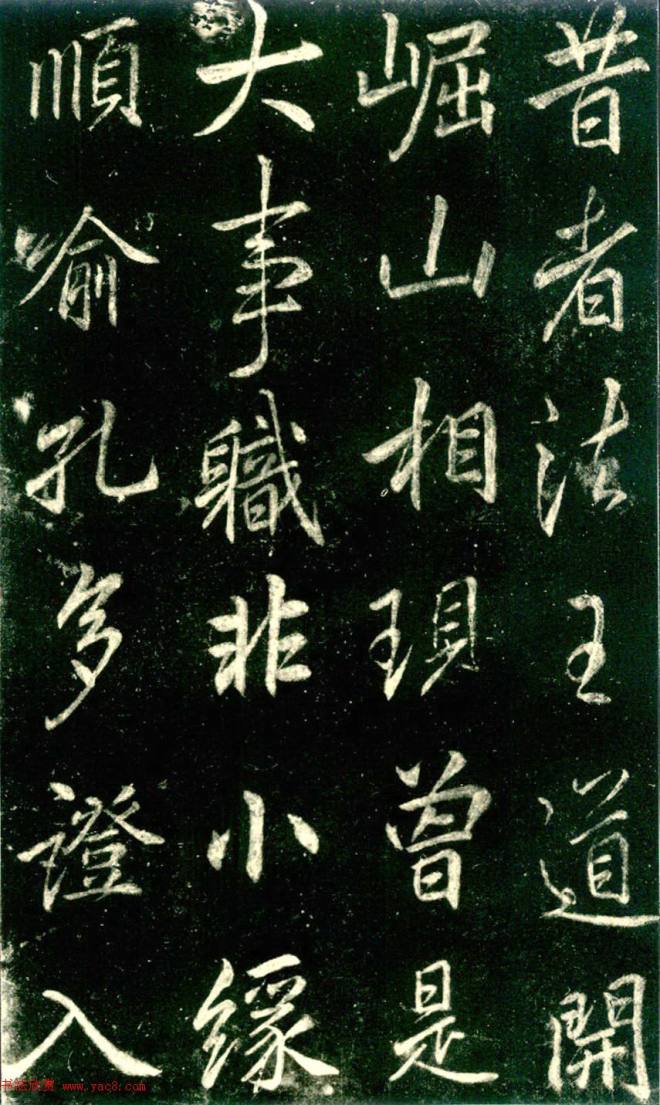 昔者法王道開
崛山相現曾是
大事職非小緣
順喻孔多證入
书法欣赏 www.yac8.com